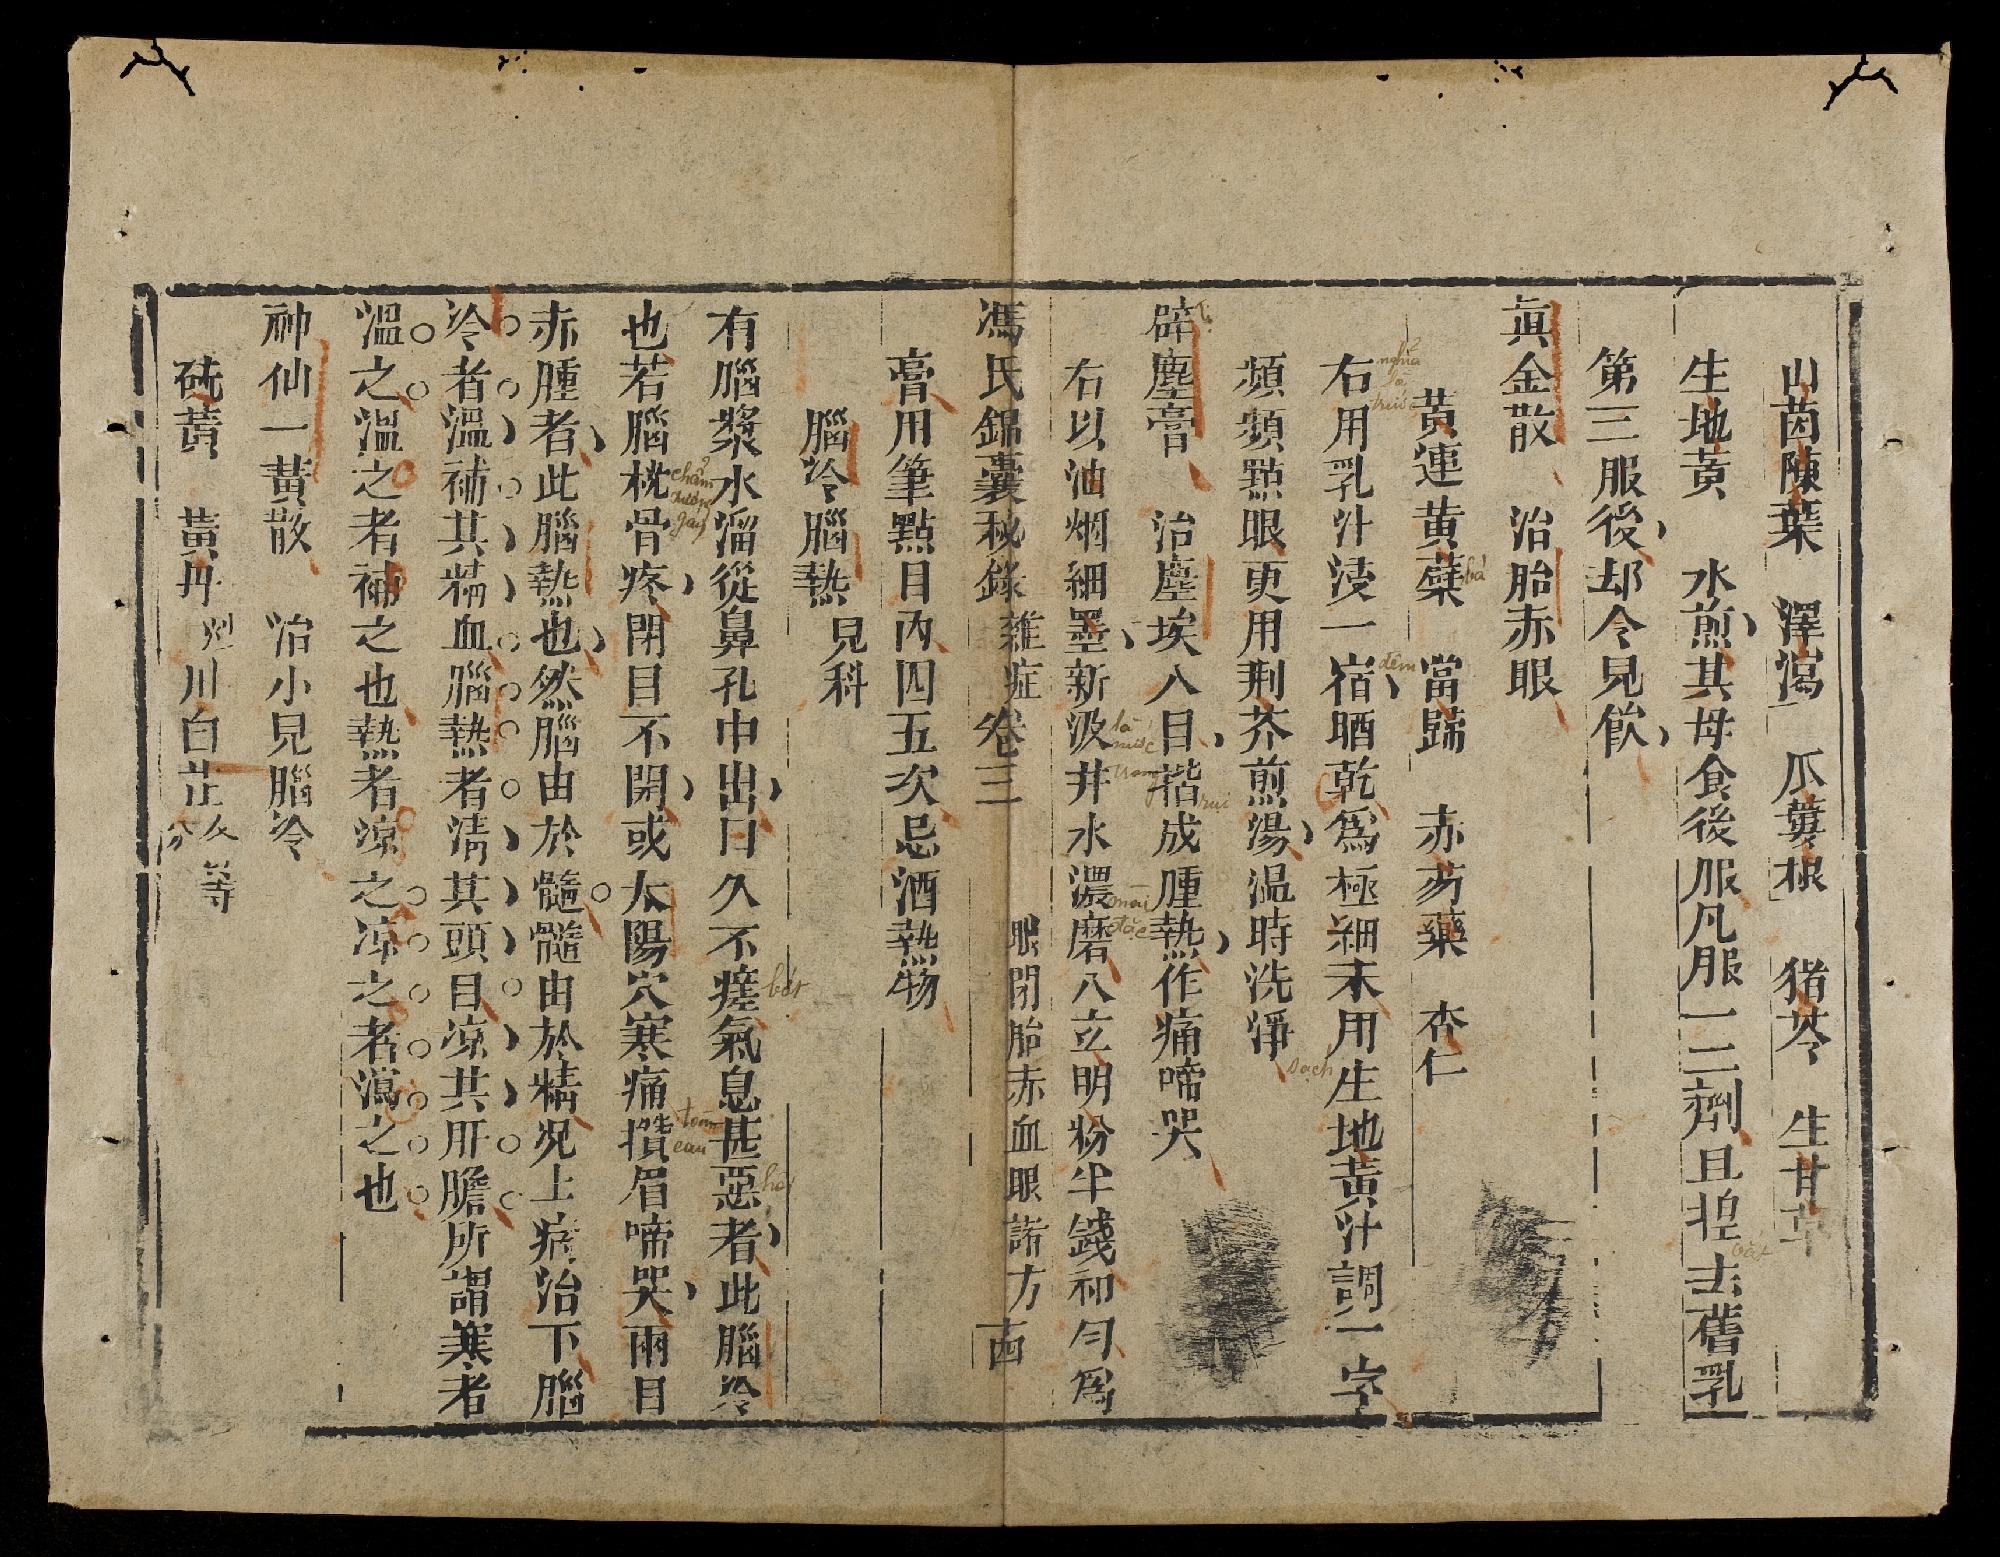 山茵陳葉 澤瀉 瓜蔞根 猪苓 生甘草
生地黃 水煎其母食後服凡服一二劑且捏去舊乳
第三服後却令兒飲
眞金散 治胎赤眼
黃連黃蘗 當歸 赤芍藥 杏仁
右用乳汁浸一宿晒乾爲極細末用生地黃汁調一字
頻頻點眼更用荆芥煎湯温時洗淨
辟塵膏 治塵埃入目揩成腫熱作痛啼哭
右以油烟細墨新汲井水濃磨入玄明粉半錢和勻爲
馮氏錦囊秘錄 雜症 卷三 眼閉胎赤血眼諸方
膏用筆點目內四五次忌酒熱物
腦冷腦熱 兒科
有腦漿水溜從鼻孔中出日久不瘥氣息甚惡者此腦冷
也若腦枕骨疼閉目不開或太陽穴寒痛攢眉啼哭兩目
赤腫者此腦熱也然腦由於髓髓由於精況上病治下腦
冷者溫補其精血腦熱者清其頭目凉其肝膽所謂寒者
溫之溫之者補之也熱者凉之凉之者瀉之也
神仙一黃散 治小兒腦冷
硫黃 黃丹 川白芷 各等分
nghĩa là
bá
đêm
sạch
rụi
là
mài
đặc
bớt
chẩm
xương
gáy